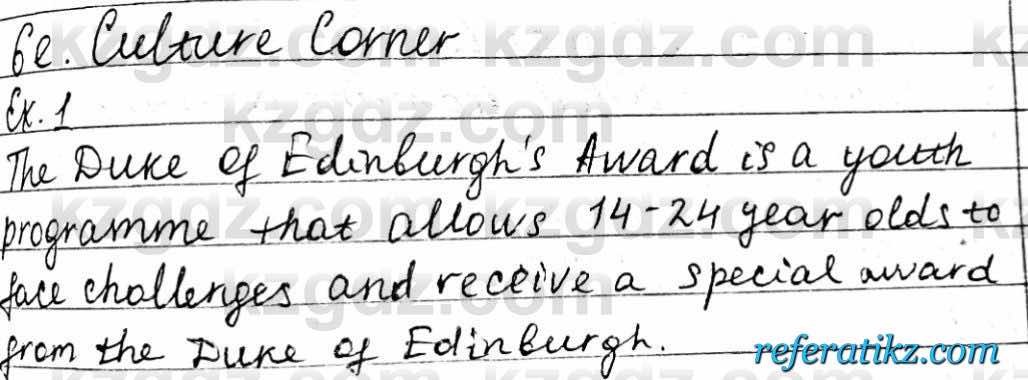 6e. Culture Corner
Ex. 1
The Duke of Edinburgh's Award is a youth
programme that allows 14-24 year olds to
face challenges and receive a special award
from the Duke of Edinburgh.
referatikz.com
kzgdz.com